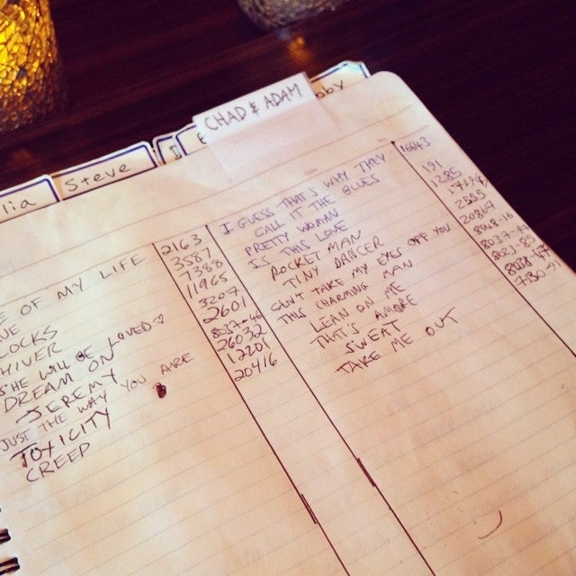 CHAD & ADAM
Steve
lia
bby
E OF MY LIFE
UE
LOCKS
HIVER
SHE WILL BE LOVED♡
DREAM ON
JEREMY
JUST THE WAY YOU ARE
TOXICITY
CREEP
2163
3587
7388
11965
3207
2601
26032
12201
20416
I GUESS THAT'S WHY THEY
CALL IT THE BLUES
PRETTY WOMAN
IS THIS LOVE
ROCKET MAN
TINY DANCER
CAN'T TAKE MY EYES OFF YOU
THIS CHARMING MAN
LEAN ON ME
THAT'S AMORE
SWEAT
TAKE ME OUT
16643
191
1285
2555
20864